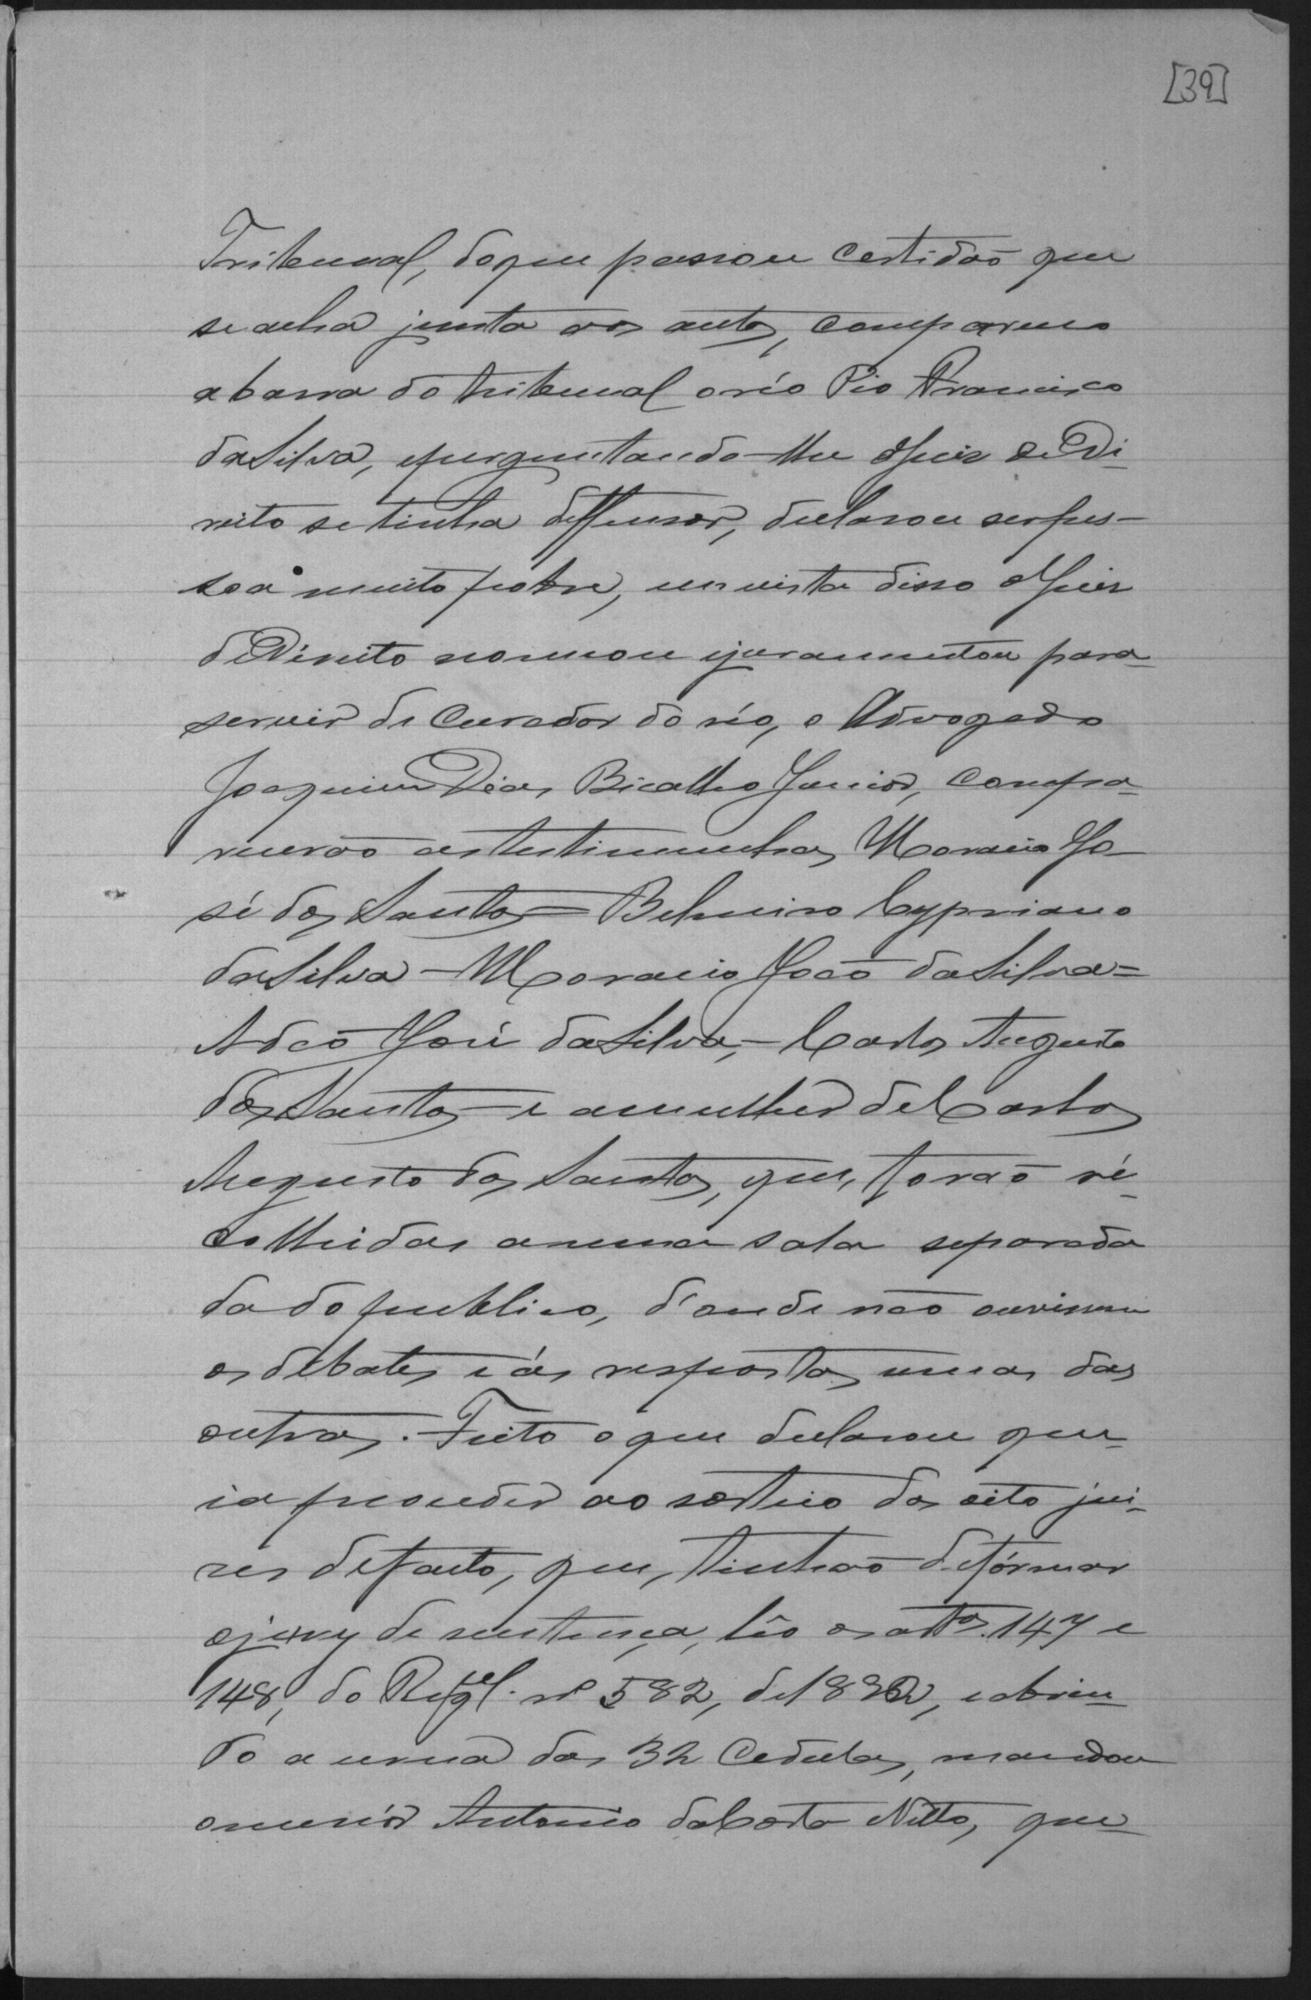 [39]
Tribunal, do que passou certidaõ que
se acha junta aos autos, compareceo
a barra do tribunal o réo Pio Francisco
da Silva, e perguntando-lhe o Juiz de Di-
reito se tinha deffensor, declarou ser pes-
soa muito pobre, em vista disso o Juiz
de Direito nomeou e juramentou para
servir de Curador do réo, o Advogado
Joaquim Dias Bicalho Junior, compa-
recerão as testimunhas Moracio Jo-
sé dos Santos – Belmiro Cypriano
da Silva – Moracio João da Silva =
Adão José da Silva, – Carlos Augusto
dos Santos – e a mulher de Carlos
Augusto dos Santos, que, forão re-
colhidas a numa sala separada
da do publico, d'onde não ouvissem
os debates e ás respostas umas das
outras. Feito o que declarou que
ia proceder ao sorteio dos oito jui-
zes de facto, que, tinhão de fórmar
o jury de sentença, lêo os attºs. 147 e
148, do Regel. nº 582, de 18 , e abrin-
do a urna das 32 Cedulas, mandou
o menór Antonio da Costa Netto, que